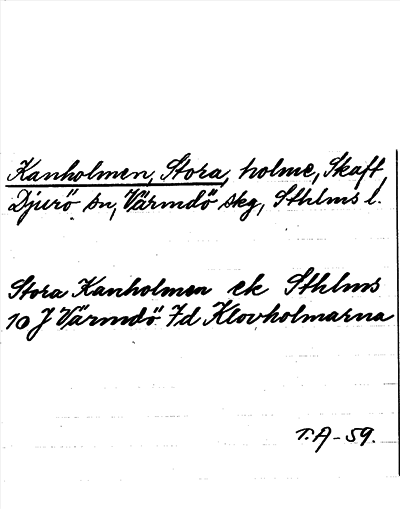 Kanholmen, Stora, holme, Skaft,
Djurö sn, Värmdö skg, Sthlms l.
Stora Kanholmen ek Sthlms
10 J Värmdö 7d Klovholmarna
T.A-59.